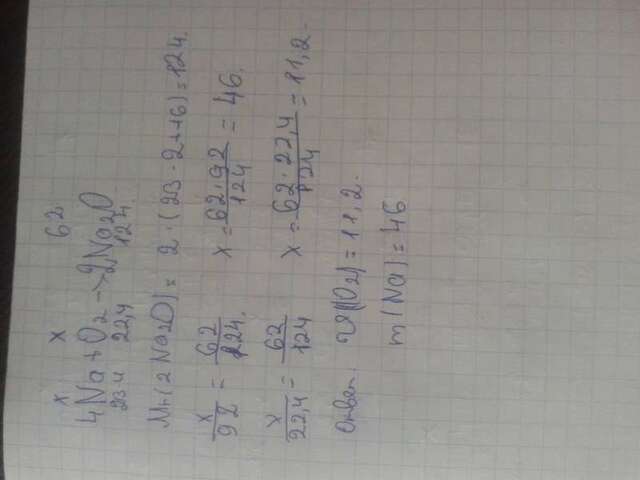 x x 62
4Na+O2→2Na2O
23·4 22,4 124
Mr(2Na2O)= 2·(23·2+16)=124.
x/92 = 62/124. x = 62·92/124 = 46.
x/22,4 = 62/124 x = 62·22,4/124 = 11,2.
Ответ. V(O2)=11,2.
m(Na)=46